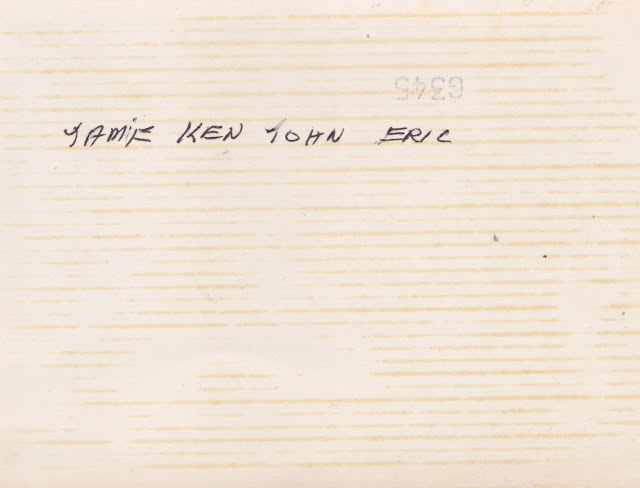 G345
JAMIE KEN JOHN ERIC